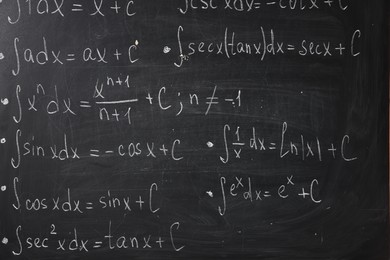 ∫1dx = x + C
∫csc²xdx = -cotx + C
∫adx = ax + C
∫secx(tanx)dx = secx + C
∫xⁿdx = xⁿ⁺¹/n+1 + C ; n ≠ -1
∫sinxdx = -cosx + C
∫1/x dx = ln|x| + C
∫cosxdx = sinx + C
∫eˣdx = eˣ + C
∫sec²xdx = tanx + C